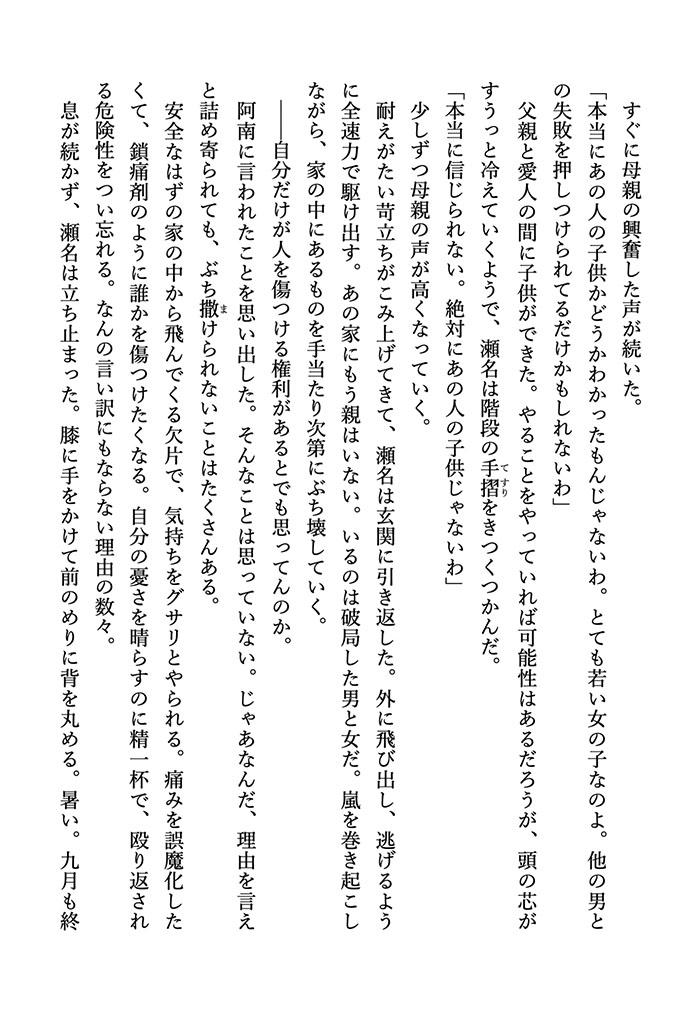 すぐに母親の興奮した声が続いた。
「本当にあの人の子供かどうかわかったもんじゃないわ。とても若い女の子なのよ。他の男と
の失敗を押しつけられてるだけかもしれないわ」
父親と愛人の間に子供ができた。やることをやっていれば可能性はあるだろうが、頭の芯が
すうっと冷えていくようで、瀬名は階段の手摺てすりをきつくつかんだ。
「本当に信じられない。絶対にあの人の子供じゃないわ」
少しずつ母親の声が高くなっていく。
耐えがたい苛立ちがこみ上げてきて、瀬名は玄関に引き返した。外に飛び出し、逃げるよう
に全速力で駆け出す。あの家にもう親はいない。いるのは破局した男と女だ。嵐を巻き起こし
ながら、家の中にあるものを手当たり次第にぶち壊していく。
――自分だけが人を傷つける権利があるとでも思ってんのか。
阿南に言われたことを思い出した。そんなことは思っていない。じゃあなんだ、理由を言え
と詰め寄られても、ぶち撒まけられないことはたくさんある。
安全なはずの家の中から飛んでくる欠片で、気持ちをグサリとやられる。痛みを誤魔化した
くて、鎮痛剤のように誰かを傷つけたくなる。自分の憂さを晴らすのに精一杯で、殴り返され
る危険性をつい忘れる。なんの言い訳にもならない理由の数々。
息が続かず、瀬名は立ち止まった。膝に手をかけて前のめりに背を丸める。暑い。九月も終